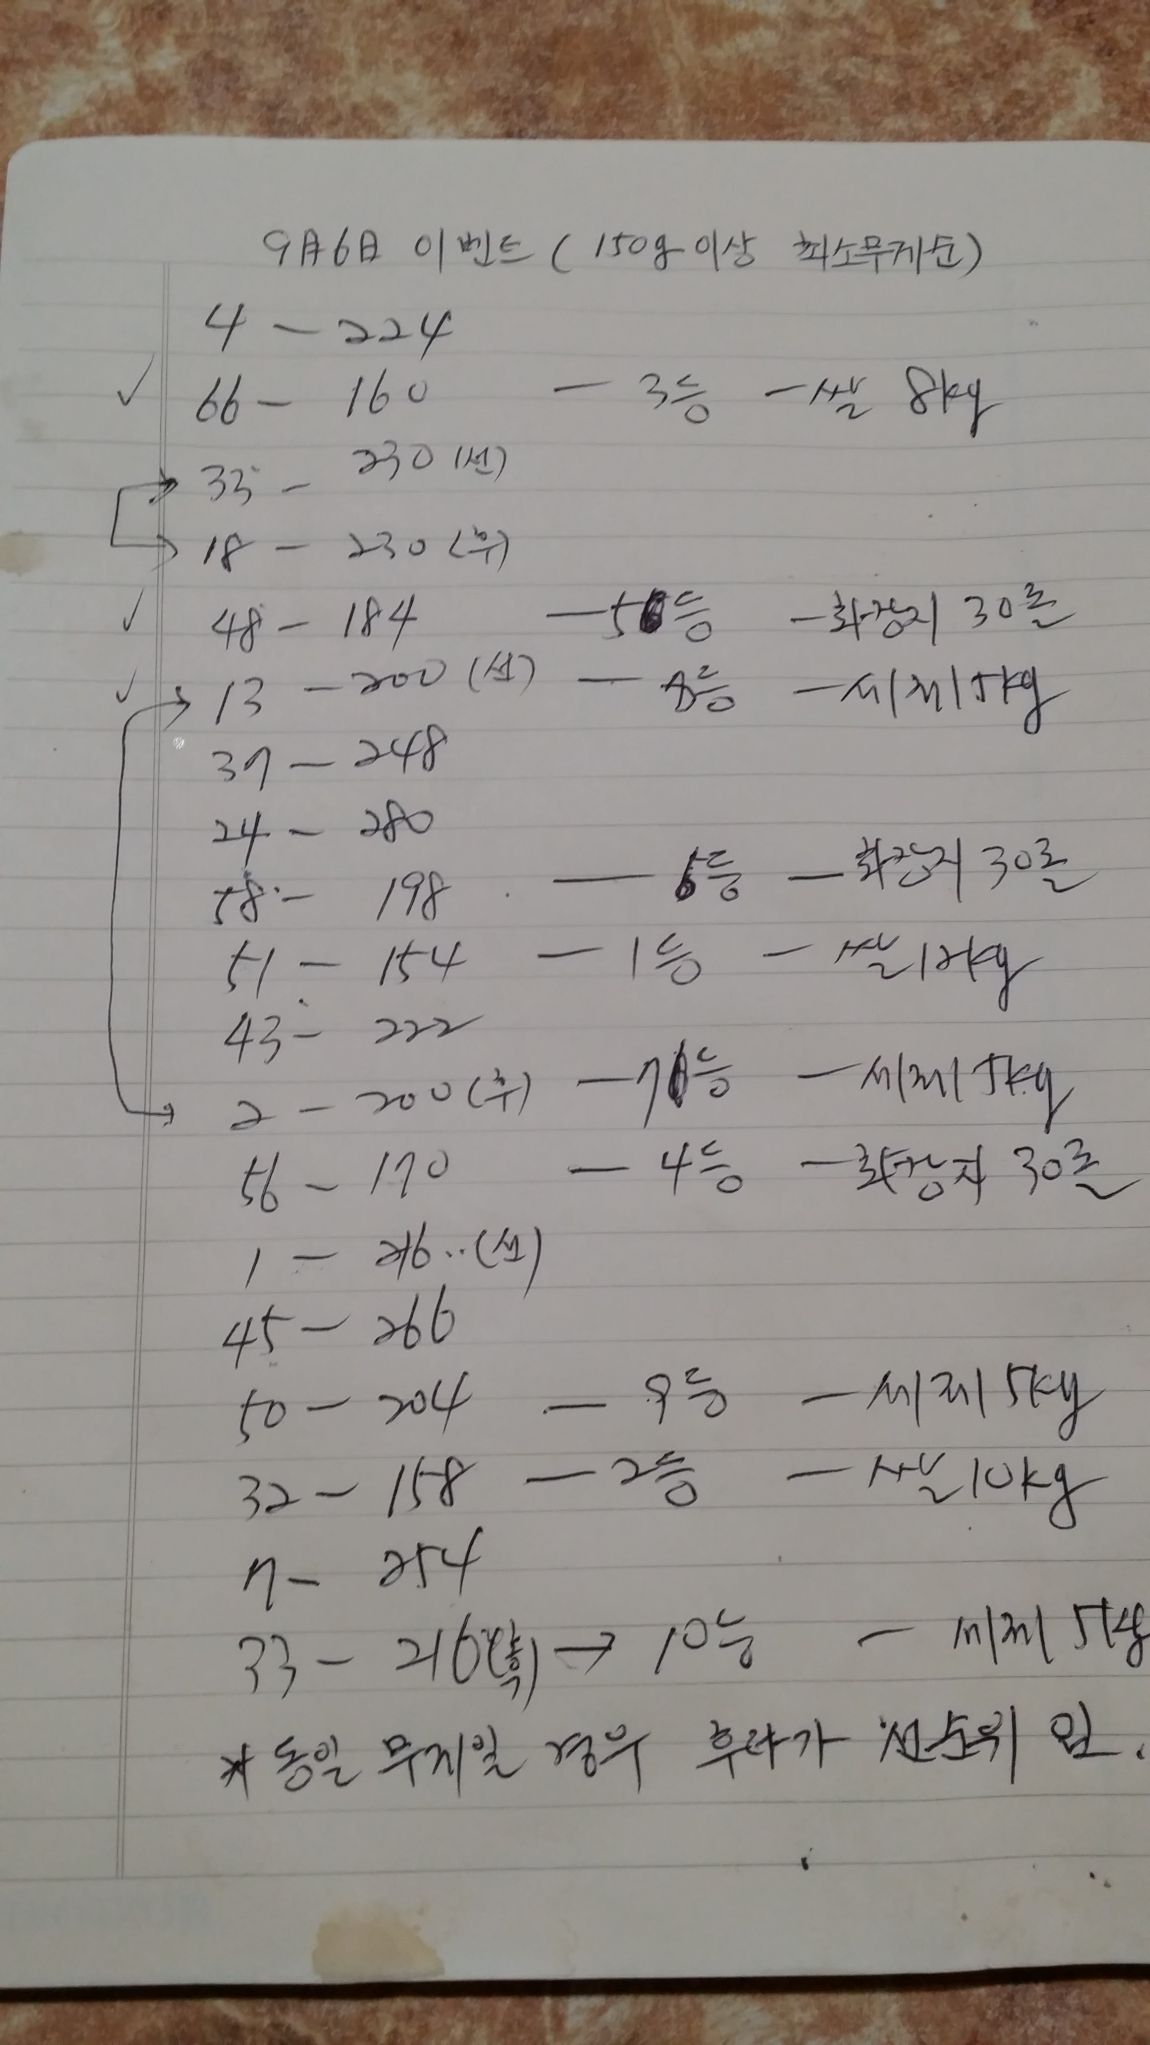 9月6日 이벤트 (150g이상 최소무게순)
4 - 224
✓ 66 - 160 - 3등 - 쌀 8kg
33 - 230 (선)
18 - 230 (후)
✓ 48 - 184 - 5등 - 화장지 30롤
✓ 13 - 200 (선) - 8등 - 세제 5kg
37 - 248
24 - 280
58 - 198 - 6등 - 화장지 30롤
51 - 154 - 1등 - 쌀 12kg
43 - 222
2 - 200 (후) - 7등 - 세제 5kg
56 - 170 - 4등 - 화장지 30롤
1 - 216 (선)
45 - 266
50 - 204 - 9등 - 세제 5kg
32 - 158 - 2등 - 쌀 10kg
7 - 254
33 - 216 → 10등 - 세제 5kg
* 동일 무게일 경우 후라가 선순위 임.